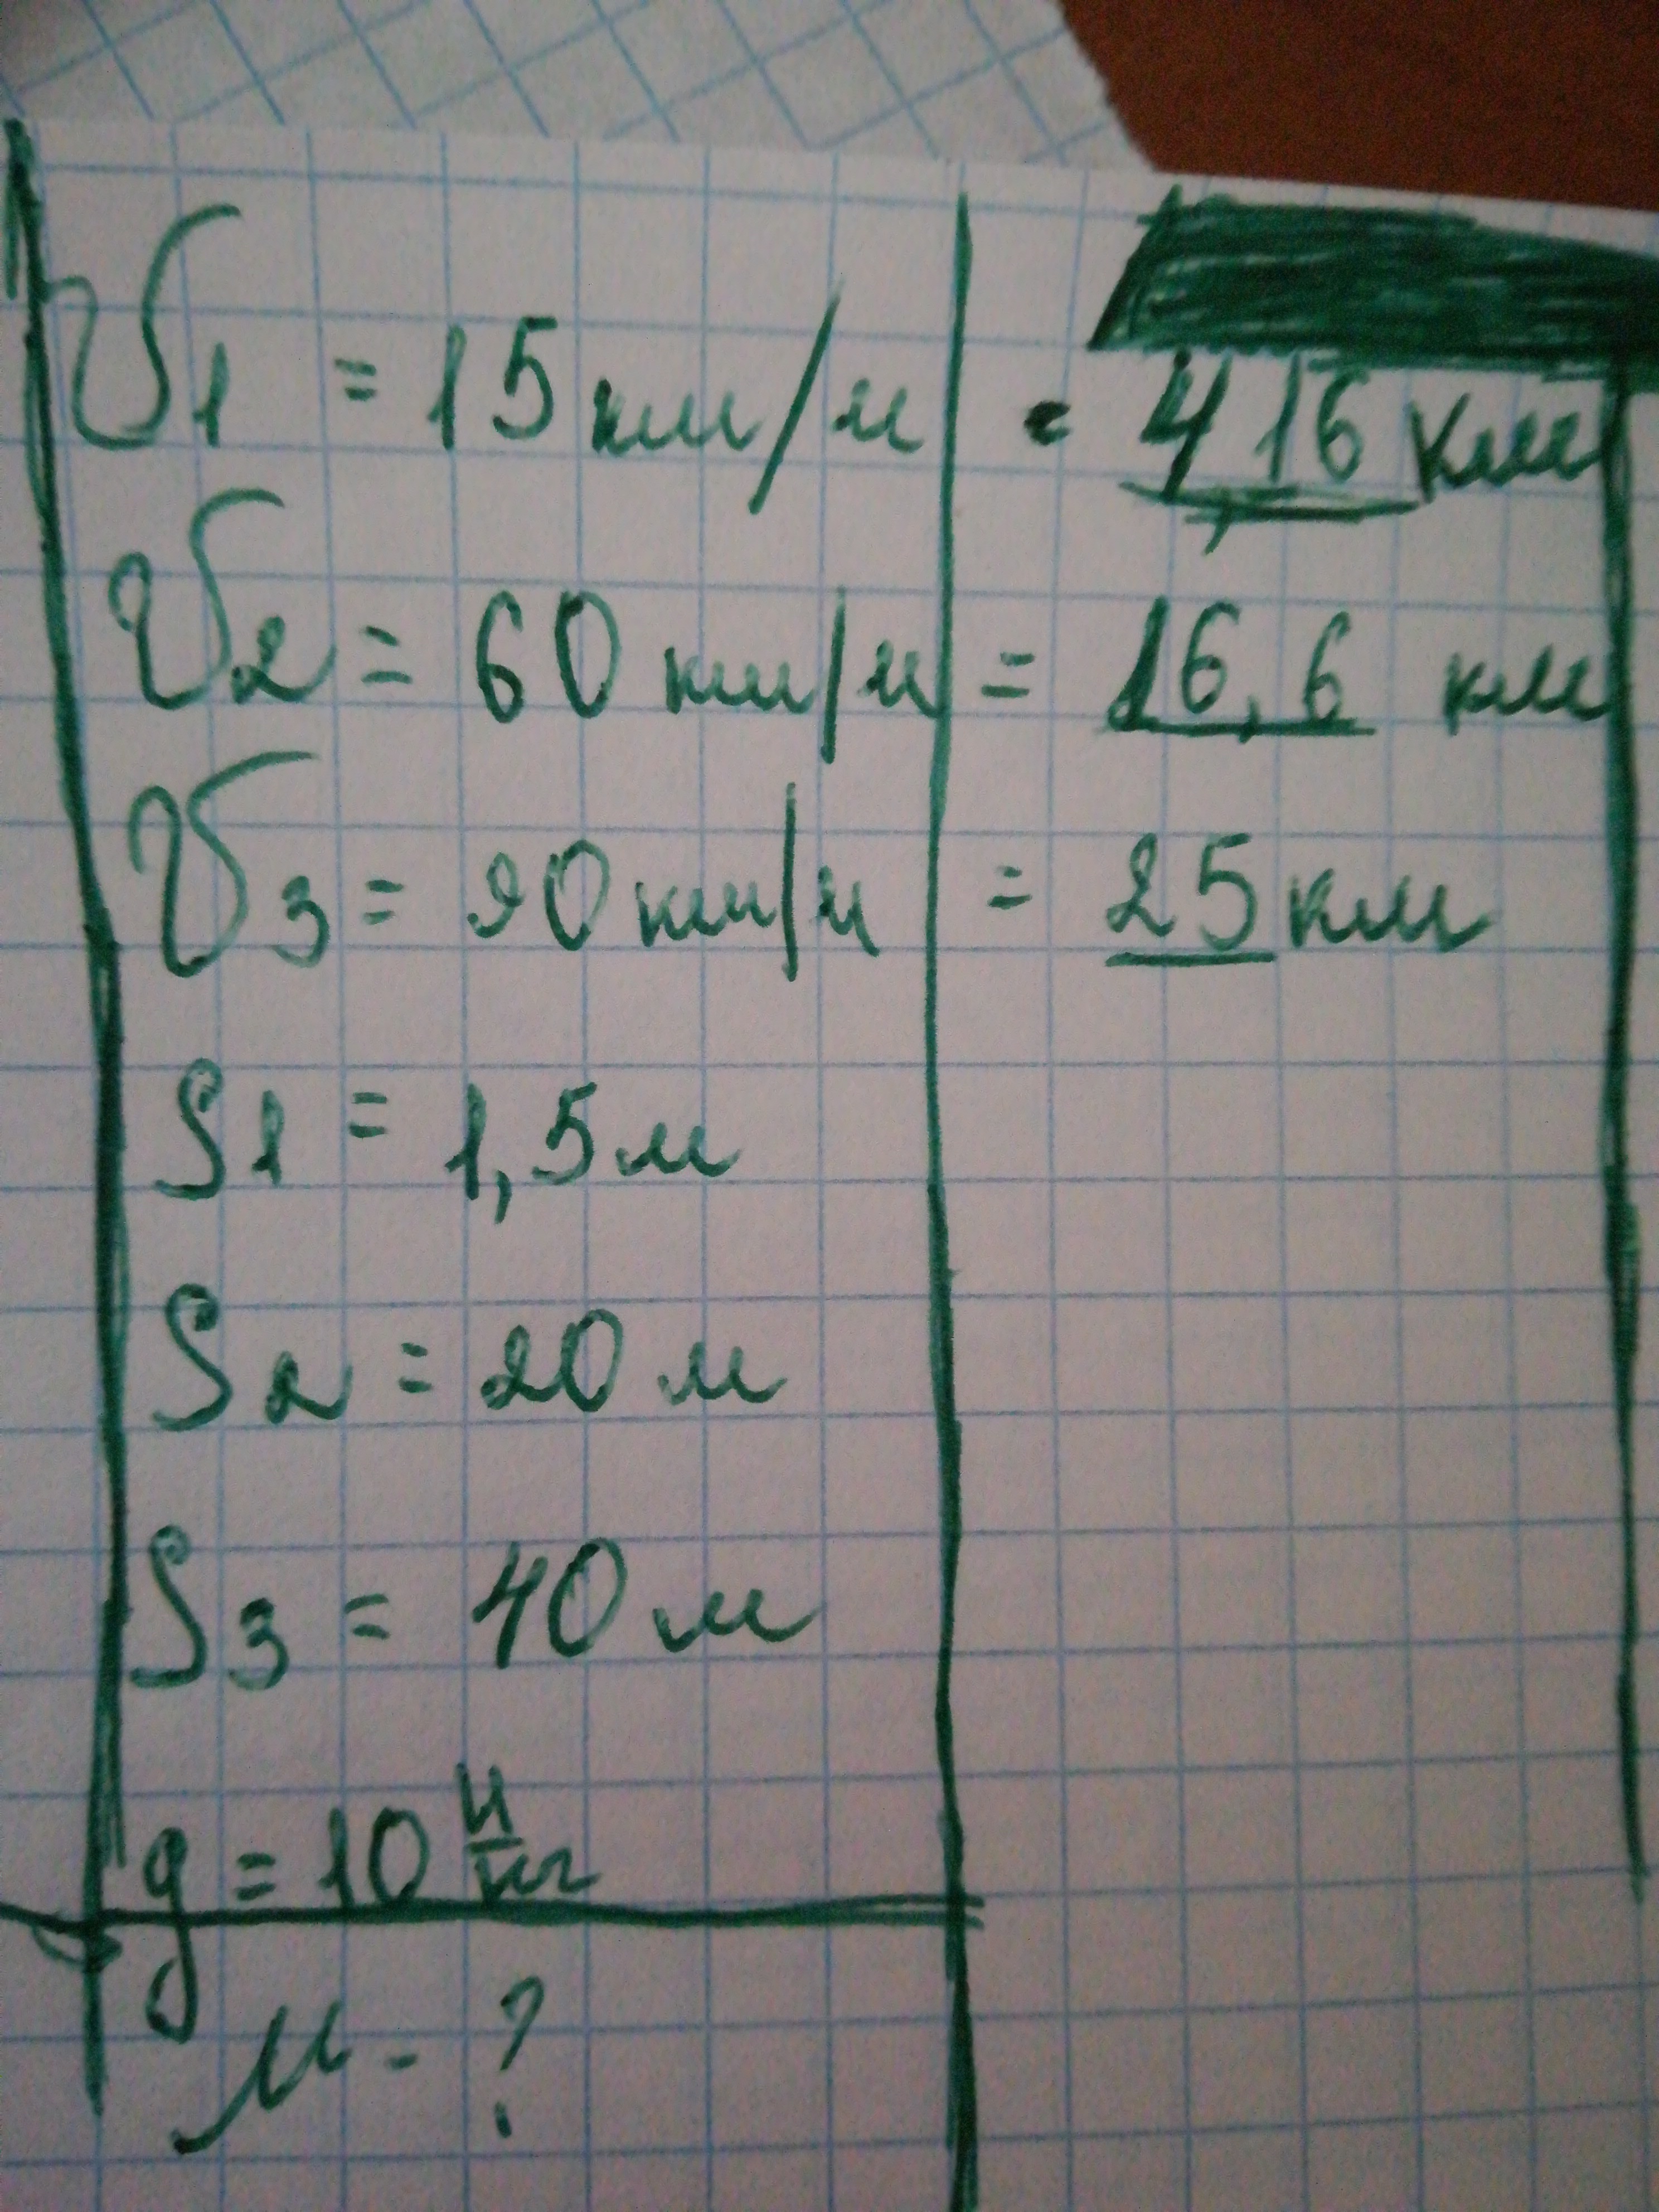 V1 = 15 км/ч = 4,16 км
V2 = 60 км/ч = 16,6 км
V3 = 90 км/ч = 25 км
S1 = 1,5 м
S2 = 20 м
S3 = 40 м
g = 10 Н/кг
μ - ?